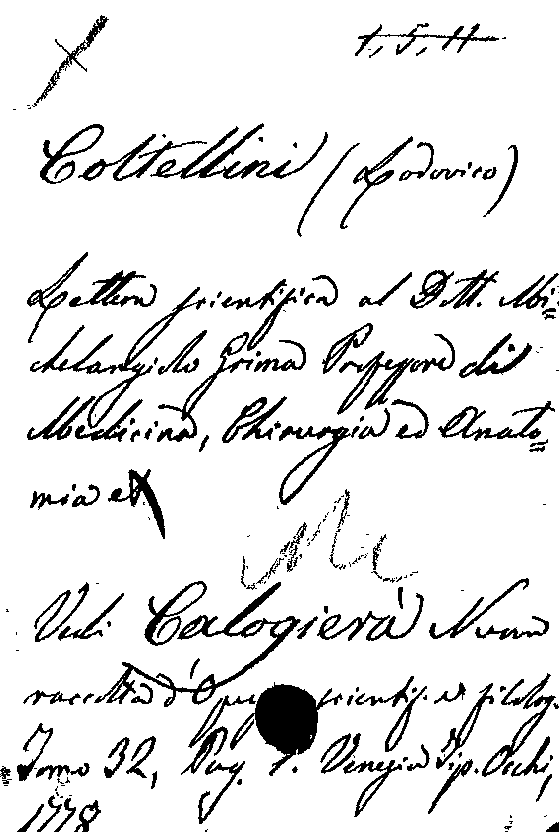 1, 5, 11
Coltellini (Lodovico)
Lettera scientifica al Dott. Mi=
chelangiolo Grima Professore di
Medicina, Chirurgia ed Anato=
mia et
Vedi Calogierà Nuova
raccolta d'Opus scientif. e filolog.
Tomo 32, Pag. 1. Venezia Tip. Occhi,
1778